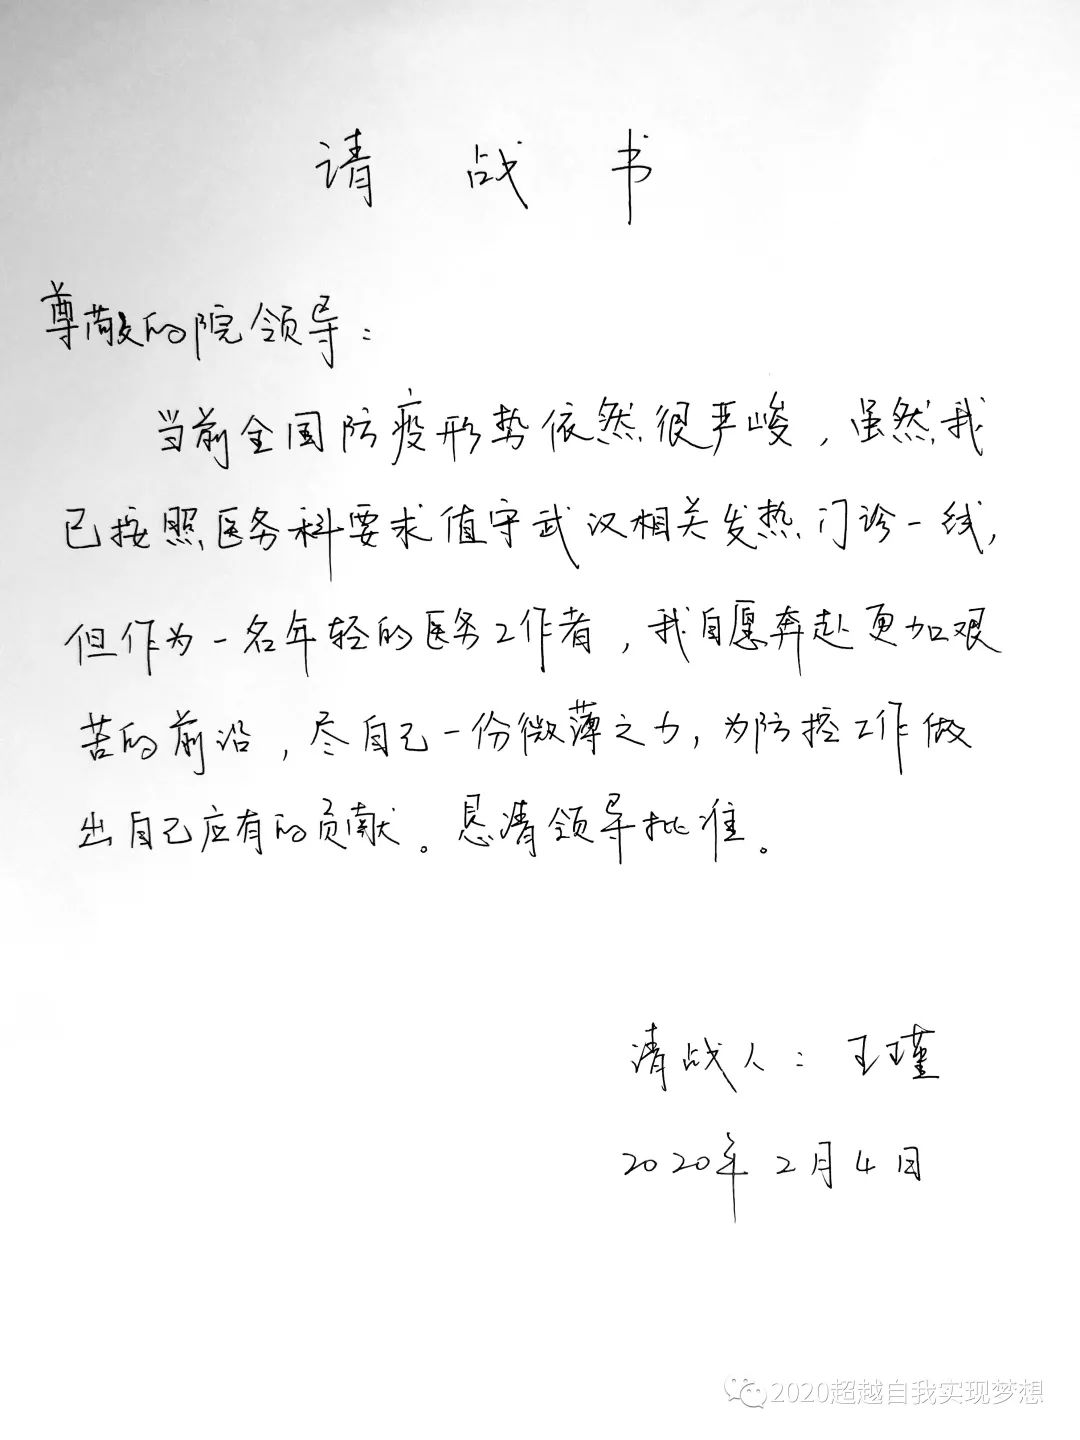 请战书
尊敬的院领导：
当前全国防疫形势依然很严峻，虽然我
已按照医务科要求值守武汉相关发热门诊一线，
但作为一名年轻的医务工作者，我自愿奔赴更加艰
苦的前沿，尽自己一份微薄之力，为防控工作做
出自己应有的贡献。恳请领导批准。
请战人：王瑾
2020年2月4日
2020超越自我实现梦想